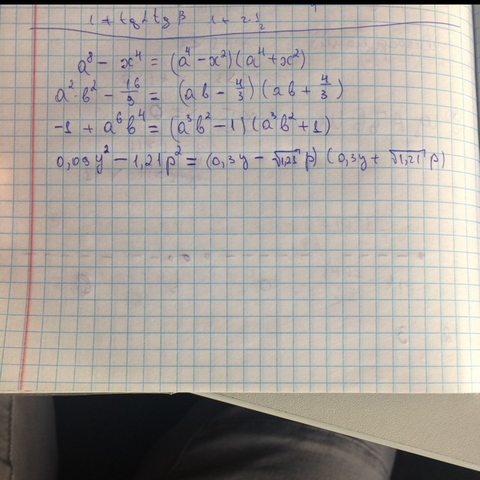 1 + tg α tg β 1 + 2 · 1/2
a⁸ − x⁴ = (a⁴ − x²)(a⁴ + x²)
a² · b² − 16/9 = (ab − 4/3)(ab + 4/3)
-1 + a⁶b⁴ = (a³b² − 1)(a³b² + 1)
0,09y² − 1,21p² = (0,3y − √1,21 p)(0,3y + √1,21 p)